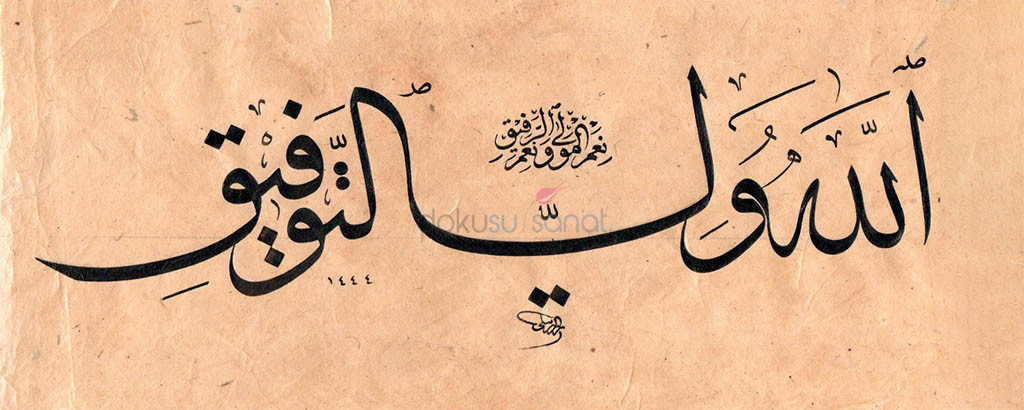 اَللّٰهُ وَلِيُّ التَّوْفِيقِ
نِعْمَ الْمَوْلٰى وَنِعْمَ الرَّفِيقُ
dokusu sanat
١٤٤٤